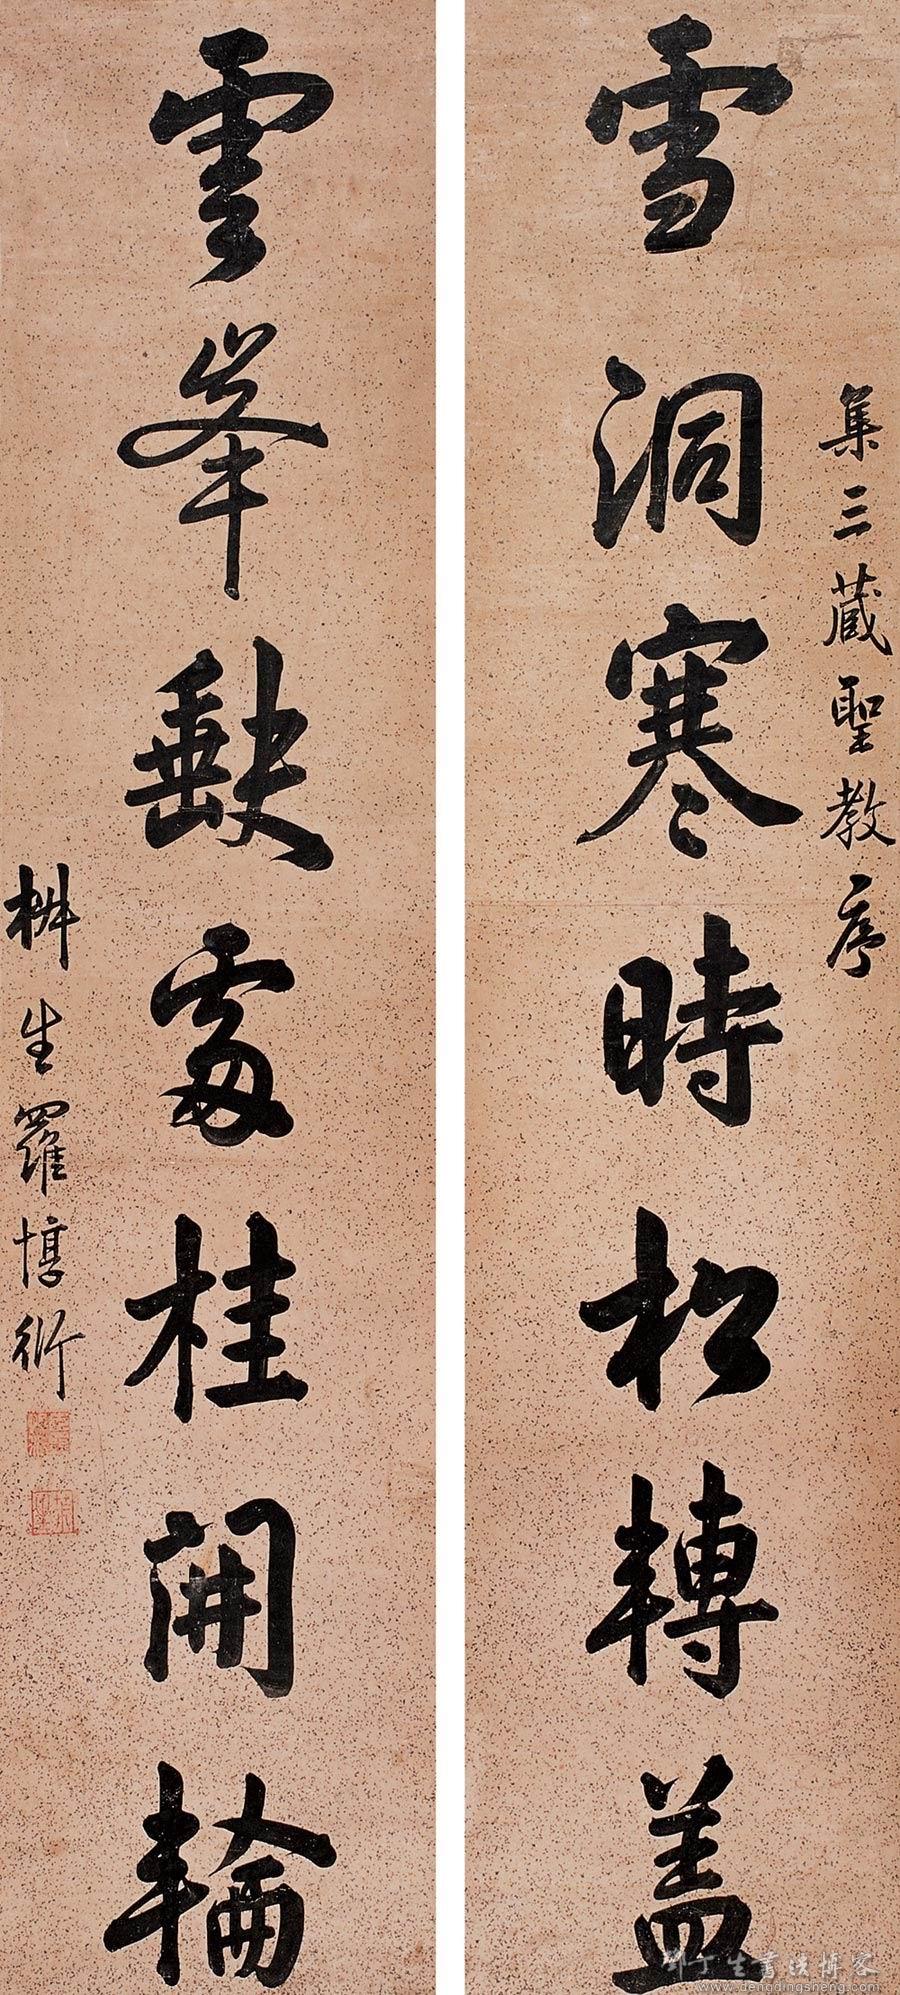 集三藏聖教序
雪洞寒時松轉盖
雲峯缺處桂開輪
椒生羅惇衍
鄧丁生書法博客
www.dengdingsheng.com